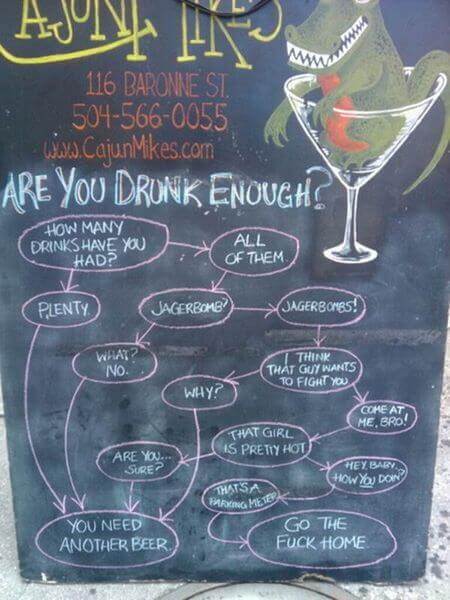 CAJUN MIKE'S
116 BARONNE ST.
504-566-0055
www.CajunMikes.com
ARE YOU DRUNK ENOUGH?
HOW MANY
DRINKS HAVE YOU
HAD?
ALL
OF THEM.
PLENTY.
JAGERBOMB?
JAGERBOMBS!
WHAT?
NO.
I THINK
THAT GUY WANTS
TO FIGHT YOU
WHY?
COME AT
ME, BRO!
THAT GIRL
IS PRETTY HOT
ARE YOU...
SURE?
HEY, BABY
HOW YOU DOIN?
THAT'S A
PARKING METER
YOU NEED
ANOTHER BEER.
GO THE
FUCK HOME.